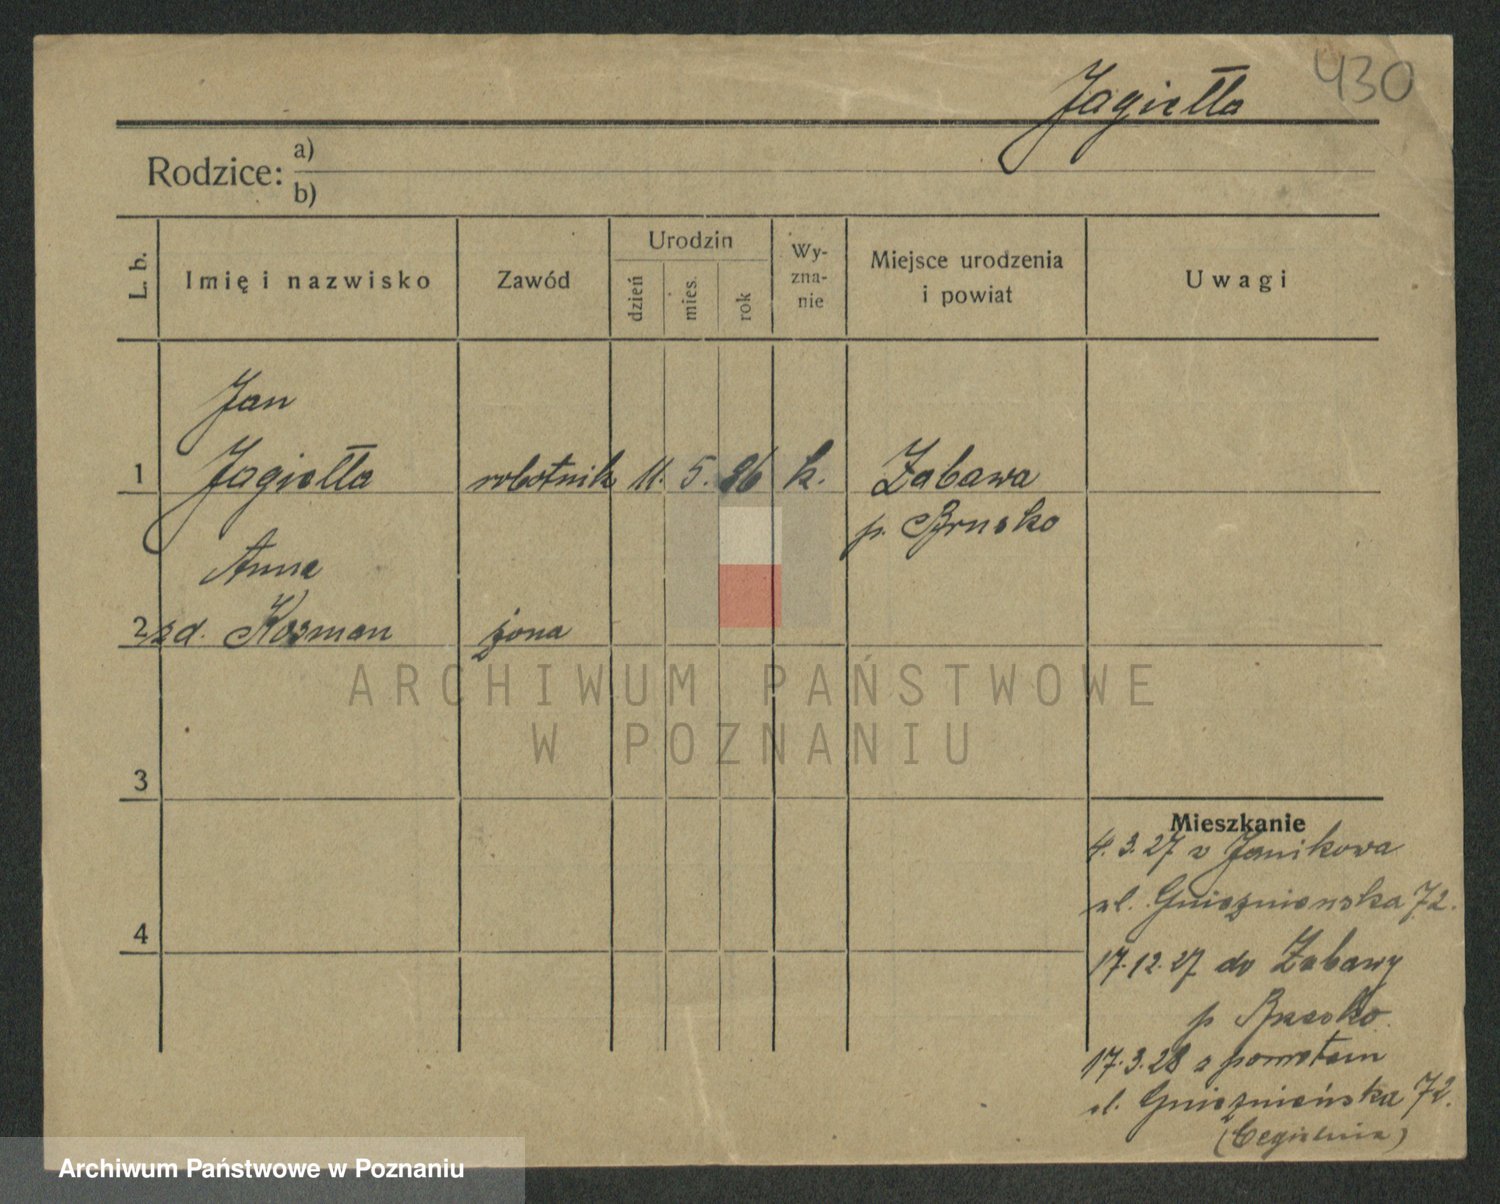 430
Jagiełła
Rodzice: a)
b)
L. b.
Imię i nazwisko
Zawód
Urodzin
dzień
mies.
rok
Wy-
zna-
nie
Miejsce urodzenia
i powiat
Uwagi
Jan
1 Jagiełła robotnik 11. 5. 86 k. Zabawa
p. Brusko
Anna
2 zd. Kosman żona
3
4
Mieszkanie
4.3.27 z Janikowa
ul. Gnieźnienska 72.
17.12.27 do Zabawy
p Brzesko
17.3.28 z powrotem
ul. Gnieźnieńska 72.
(Cegielnia)
ARCHIWUM PAŃSTWOWE
W POZNANIU
Archiwum Państwowe w Poznaniu